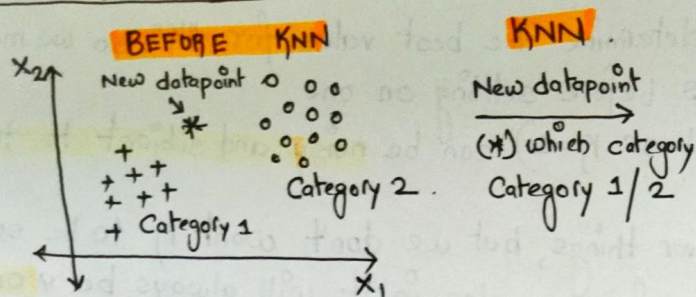 BEFORE KNN
X2
New datapoint
*
Category 2.
Category 1
X1
KNN.
New datapoint
(*) which category
Category 1/2